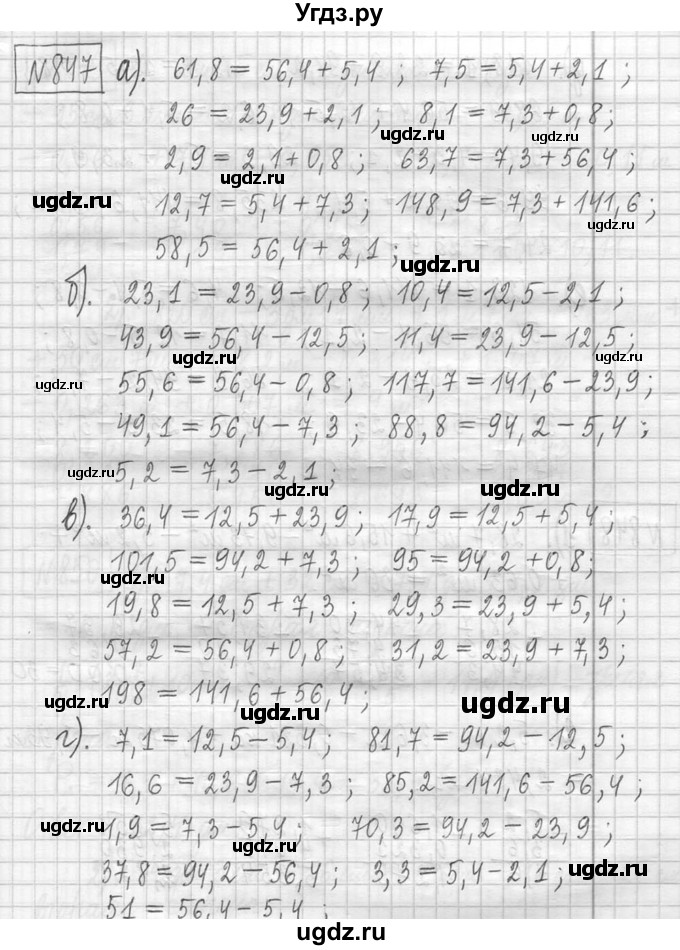 Угдз.ру
№847 а). 61,8 = 56,4 + 5,4 ; 7,5 = 5,4 + 2,1 ;
26 = 23,9 + 2,1 ; 8,1 = 7,3 + 0,8 ;
ugdz.ru ugdz.ru
2,9 = 2,1 + 0,8 ; 63,7 = 7,3 + 56,4 ;
ugdz.ru
ugdz.ru 12,7 = 5,4 + 7,3 ; 148,9 = 7,3 + 141,6 ;
ugdz.ru
58,5 = 56,4 + 2,1 ;
ugdz.ru
б). 23,1 = 23,9 – 0,8 ; 10,4 = 12,5 – 2,1 ;
43,9 = 56,4 – 12,5 ; 11,4 = 23,9 – 12,5 ;
ugdz.ru ugdz.ru
ugdz.ru 55,6 = 56,4 – 0,8 ; 117,7 = 141,6 – 23,9 ;
49,1 = 56,4 – 7,3 ; 88,8 = 94,2 – 5,4 ;
ugdz.ru 5,2 = 7,3 – 2,1 ;
ugdz.ru ugdz.ru
в). 36,4 = 12,5 + 23,9 ; 17,9 = 12,5 + 5,4 ;
101,5 = 94,2 + 7,3 ; 95 = 94,2 + 0,8 ;
ugdz.ru
19,8 = 12,5 + 7,3 ; 29,3 = 23,9 + 5,4 ;
57,2 = 56,4 + 0,8 ; 31,2 = 23,9 + 7,3 ;
198 = 141,6 + 56,4 ;
ugdz.ru ugdz.ru
г). 7,1 = 12,5 – 5,4 ; 81,7 = 94,2 – 12,5 ;
16,6 = 23,9 – 7,3 ; 85,2 = 141,6 – 56,4 ;
ugdz.ru 1,9 = 7,3 – 5,4 ; 70,3 = 94,2 – 23,9 ;
ugdz.ru
37,8 = 94,2 – 56,4 ; 3,3 = 5,4 – 2,1 ; ugdz.ru
51 = 56,4 – 5,4 ;
ugdz.ru